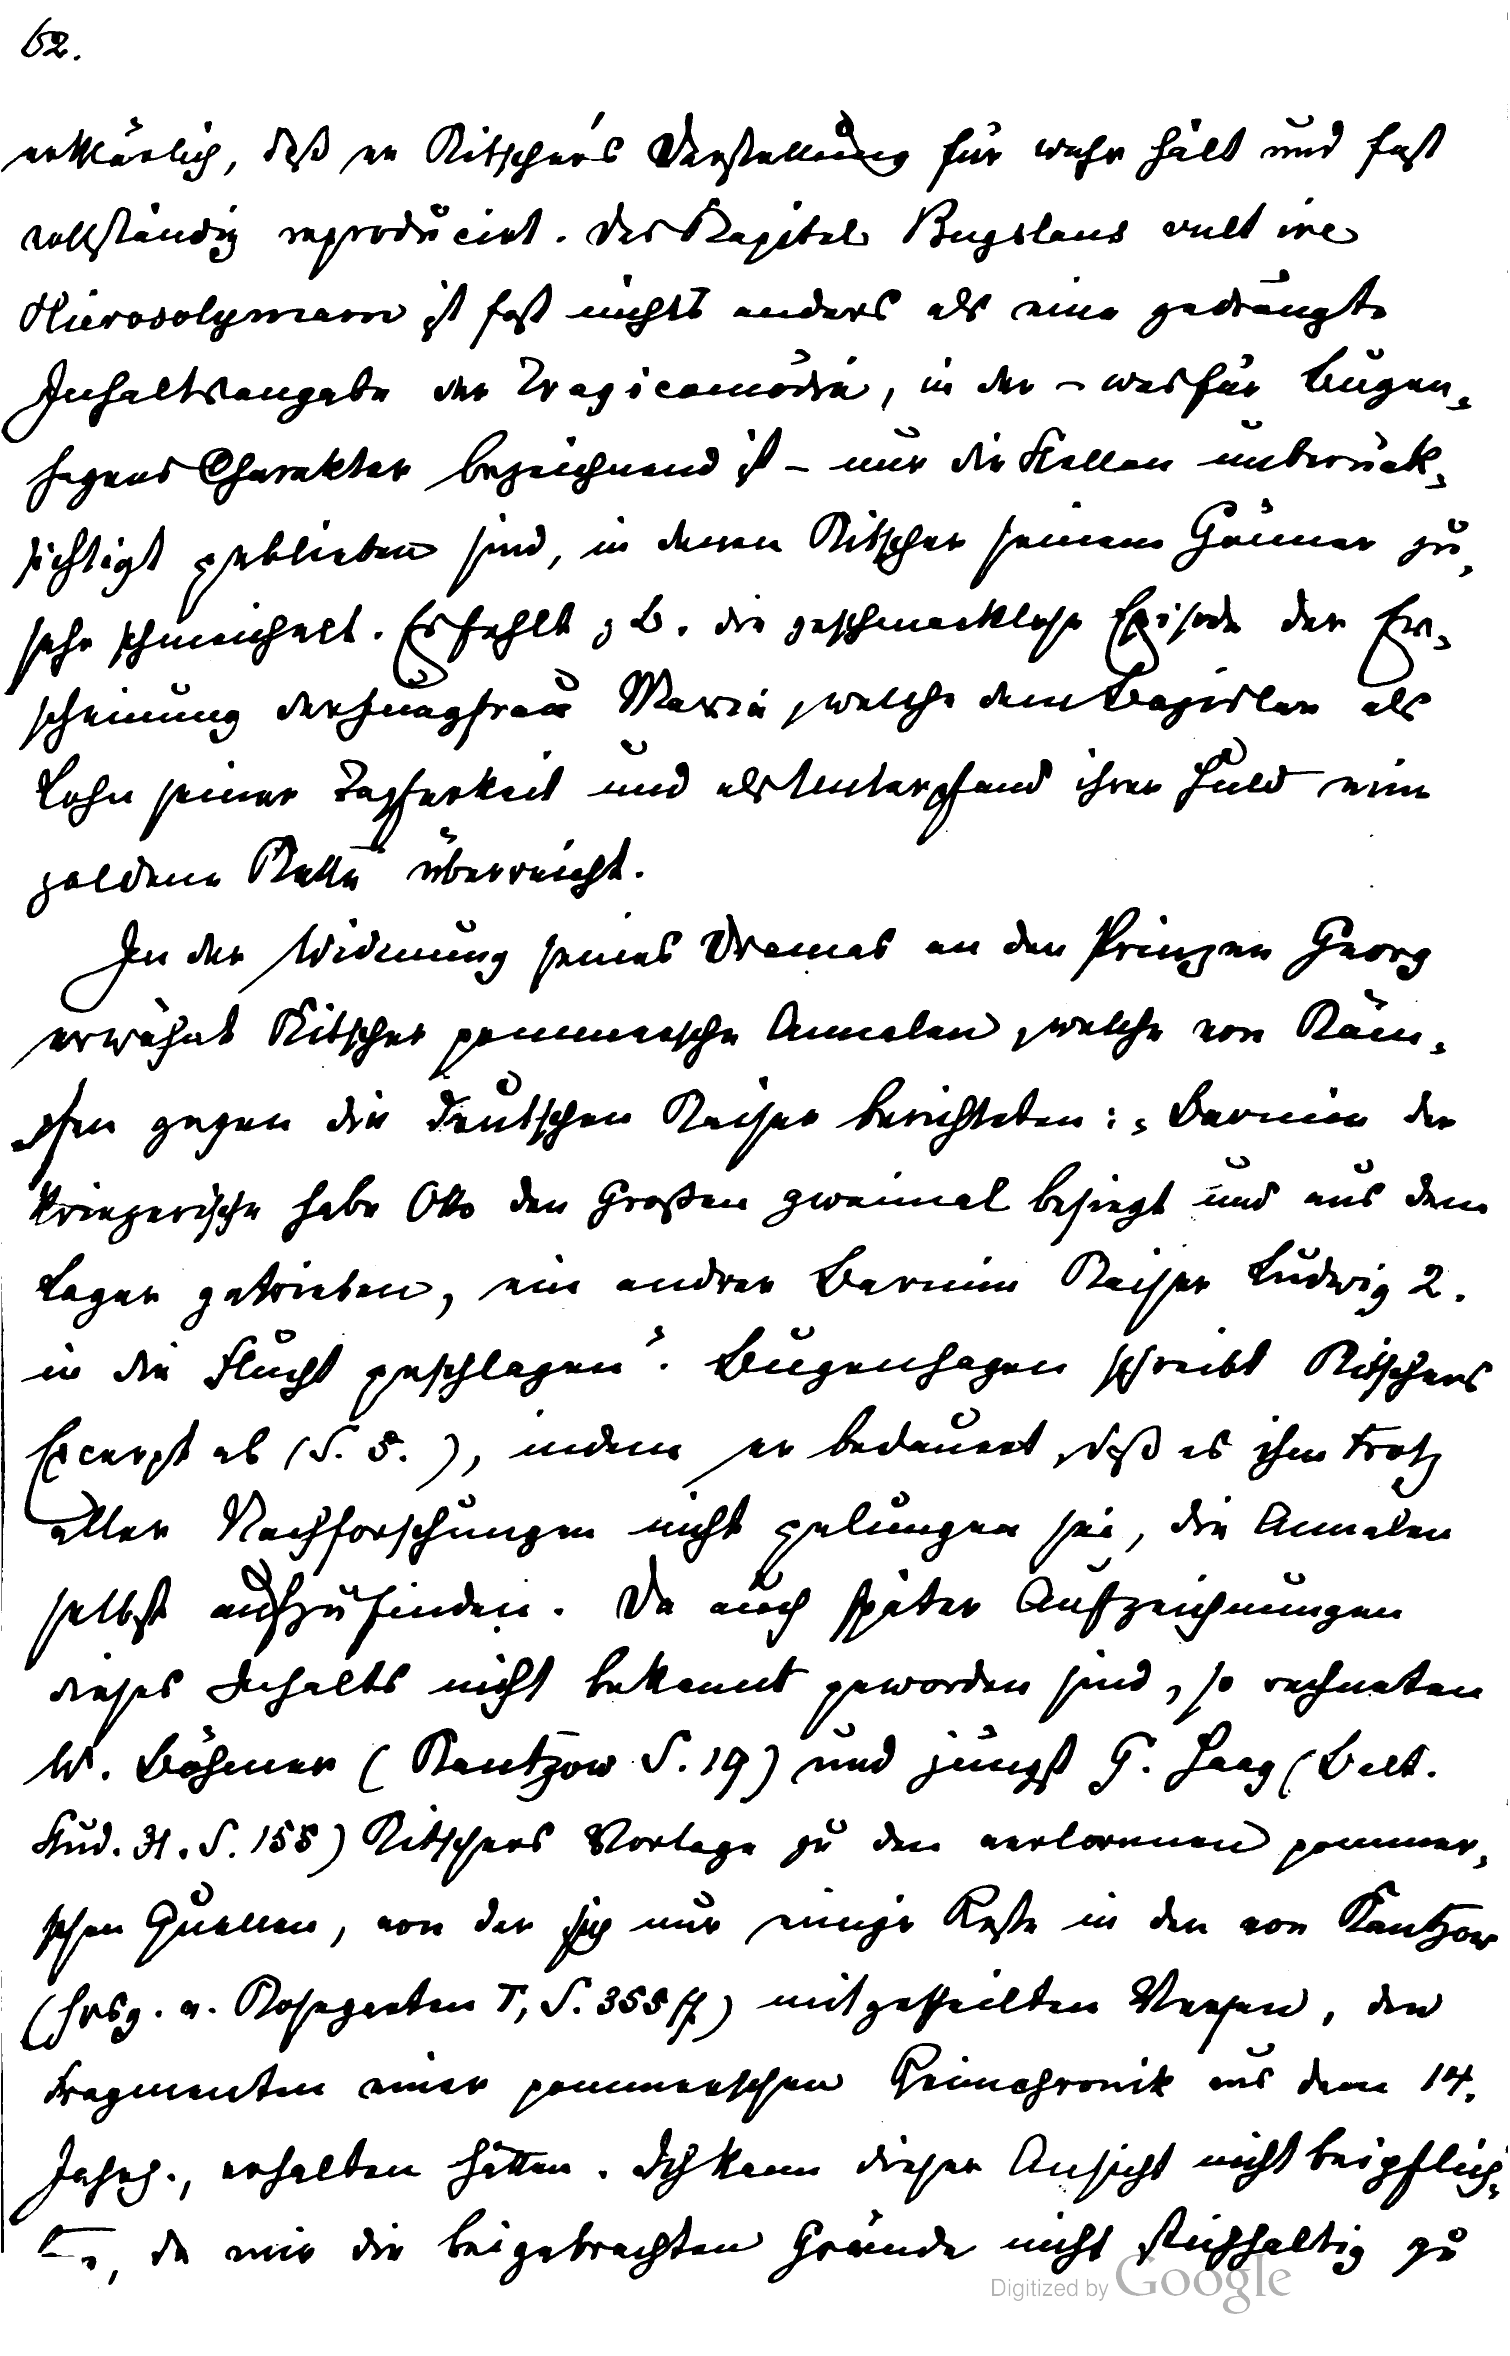 62.
erklärlich, daß er Kitscher's Darstellung für wahr hält und fast
vollständig reproducirt. Das Kapitel Bugslaus vult ire
Hierosolymam ist fast nichts anders als eine gedrängte
Inhaltsangabe der Tragicomödie, in der – was für Bugen-
hagens Charakter bezeichnend ist – nur die Stellen unberück-
sichtigt geblieben sind, in denen Kitscher seinem Gönner zu
sehr schmeichelt. Es fehlt z B. die geschmacklose Episode der Er-
scheinung der Jungfrau Maria, welche dem Bogislav als
Lohn seiner Tapferkeit und als Unterpfand ihrer Huld eine
goldene Kette überreicht.
In der Widmung seines Dramas an den Prinzen Georg
erwähnt Kitscher pommersche Annalen, welche von Käm-
pfen gegen die deutschen Kaiser berichteten: „Barnim der
kriegerische habe Otto den Großen zweimal besiegt und aus dem
Lager getrieben, ein andrer Barnim Kaiser Ludwig 2.
in die Flucht geschlagen“. Bugenhagen schreibt Kitschers
Excerpt ab (S. 5.), indem er bedauert, daß es ihm trotz
aller Nachforschungen nicht gelungen sei, die Annalen
selbst aufzufinden. Da auch später Aufzeichnungen
dieses Inhalts nicht bekannt geworden sind, so rechneten
W. Böhmer (Kantzow S. 19) und jüngst G. Haag (Balt.
Stud. 31. S. 155) Kitschers Vorlage zu den verlorenen pommer-
schen Quellen, von der sich nur einige Reste in den von Kantzow
(hrsg. v. Kosegarten I, S. 355 ff) mitgetheilten Versen, den
Fragmenten einer pommerschen Reimchronik aus dem 14.
Jahrh., erhalten hätten. Ich kann dieser Ansicht nicht beipflich-
ten, da mir die beigebrachten Gründe nicht stichhaltig zu
Digitized by Google